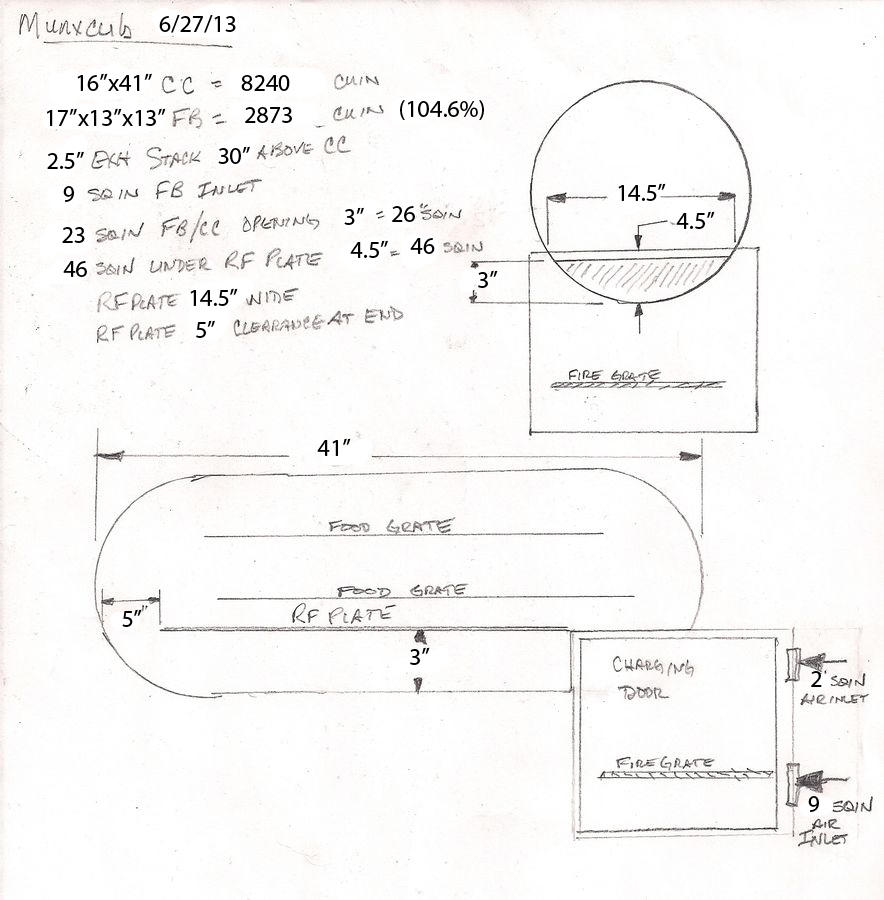 Munxcub 6/27/13
16"x41" CC = 8240 CUIN
17"x13"x13" FB = 2873 CUIN (104.6%)
2.5" EXH STACK 30" ABOVE CC
9 SQIN FB INLET
23 SQIN FB/CC OPENING 3" = 26 SQIN
46 SQIN UNDER RF PLATE 4.5" = 46 SQIN
RF PLATE 14.5" WIDE
RF PLATE 5" CLEARANCE AT END
14.5"
4.5"
3"
FIRE GRATE
41"
FOOD GRATE
FOOD GRATE
RF PLATE
5"
3"
CHARGING
DOOR
2 SQIN
AIR INLET
FIRE GRATE
9 SQIN
AIR
INLET